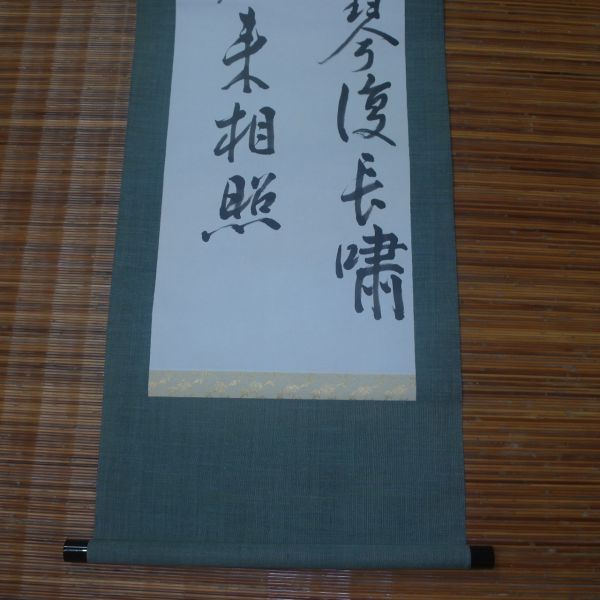 琴復長嘯
来相照